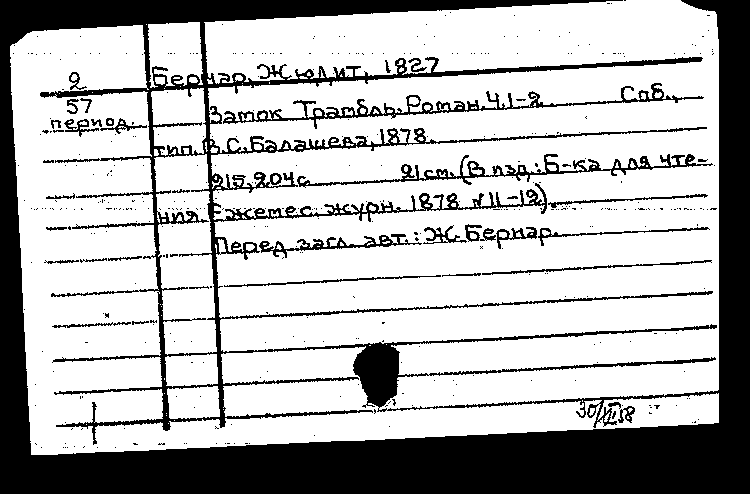 2 Бернар, Жюдит, 1827
57
период. Замок Трамбль. Роман. Ч.1-2 Спб.,
тип. В.С.Балашева, 1878.
215,204с 21см. (В изд.: Б-ка для чте-
ния. Ежемес. журн. 1878 №11-12).
Перед загл. авт.: Ж. Бернар.
30/XII 58